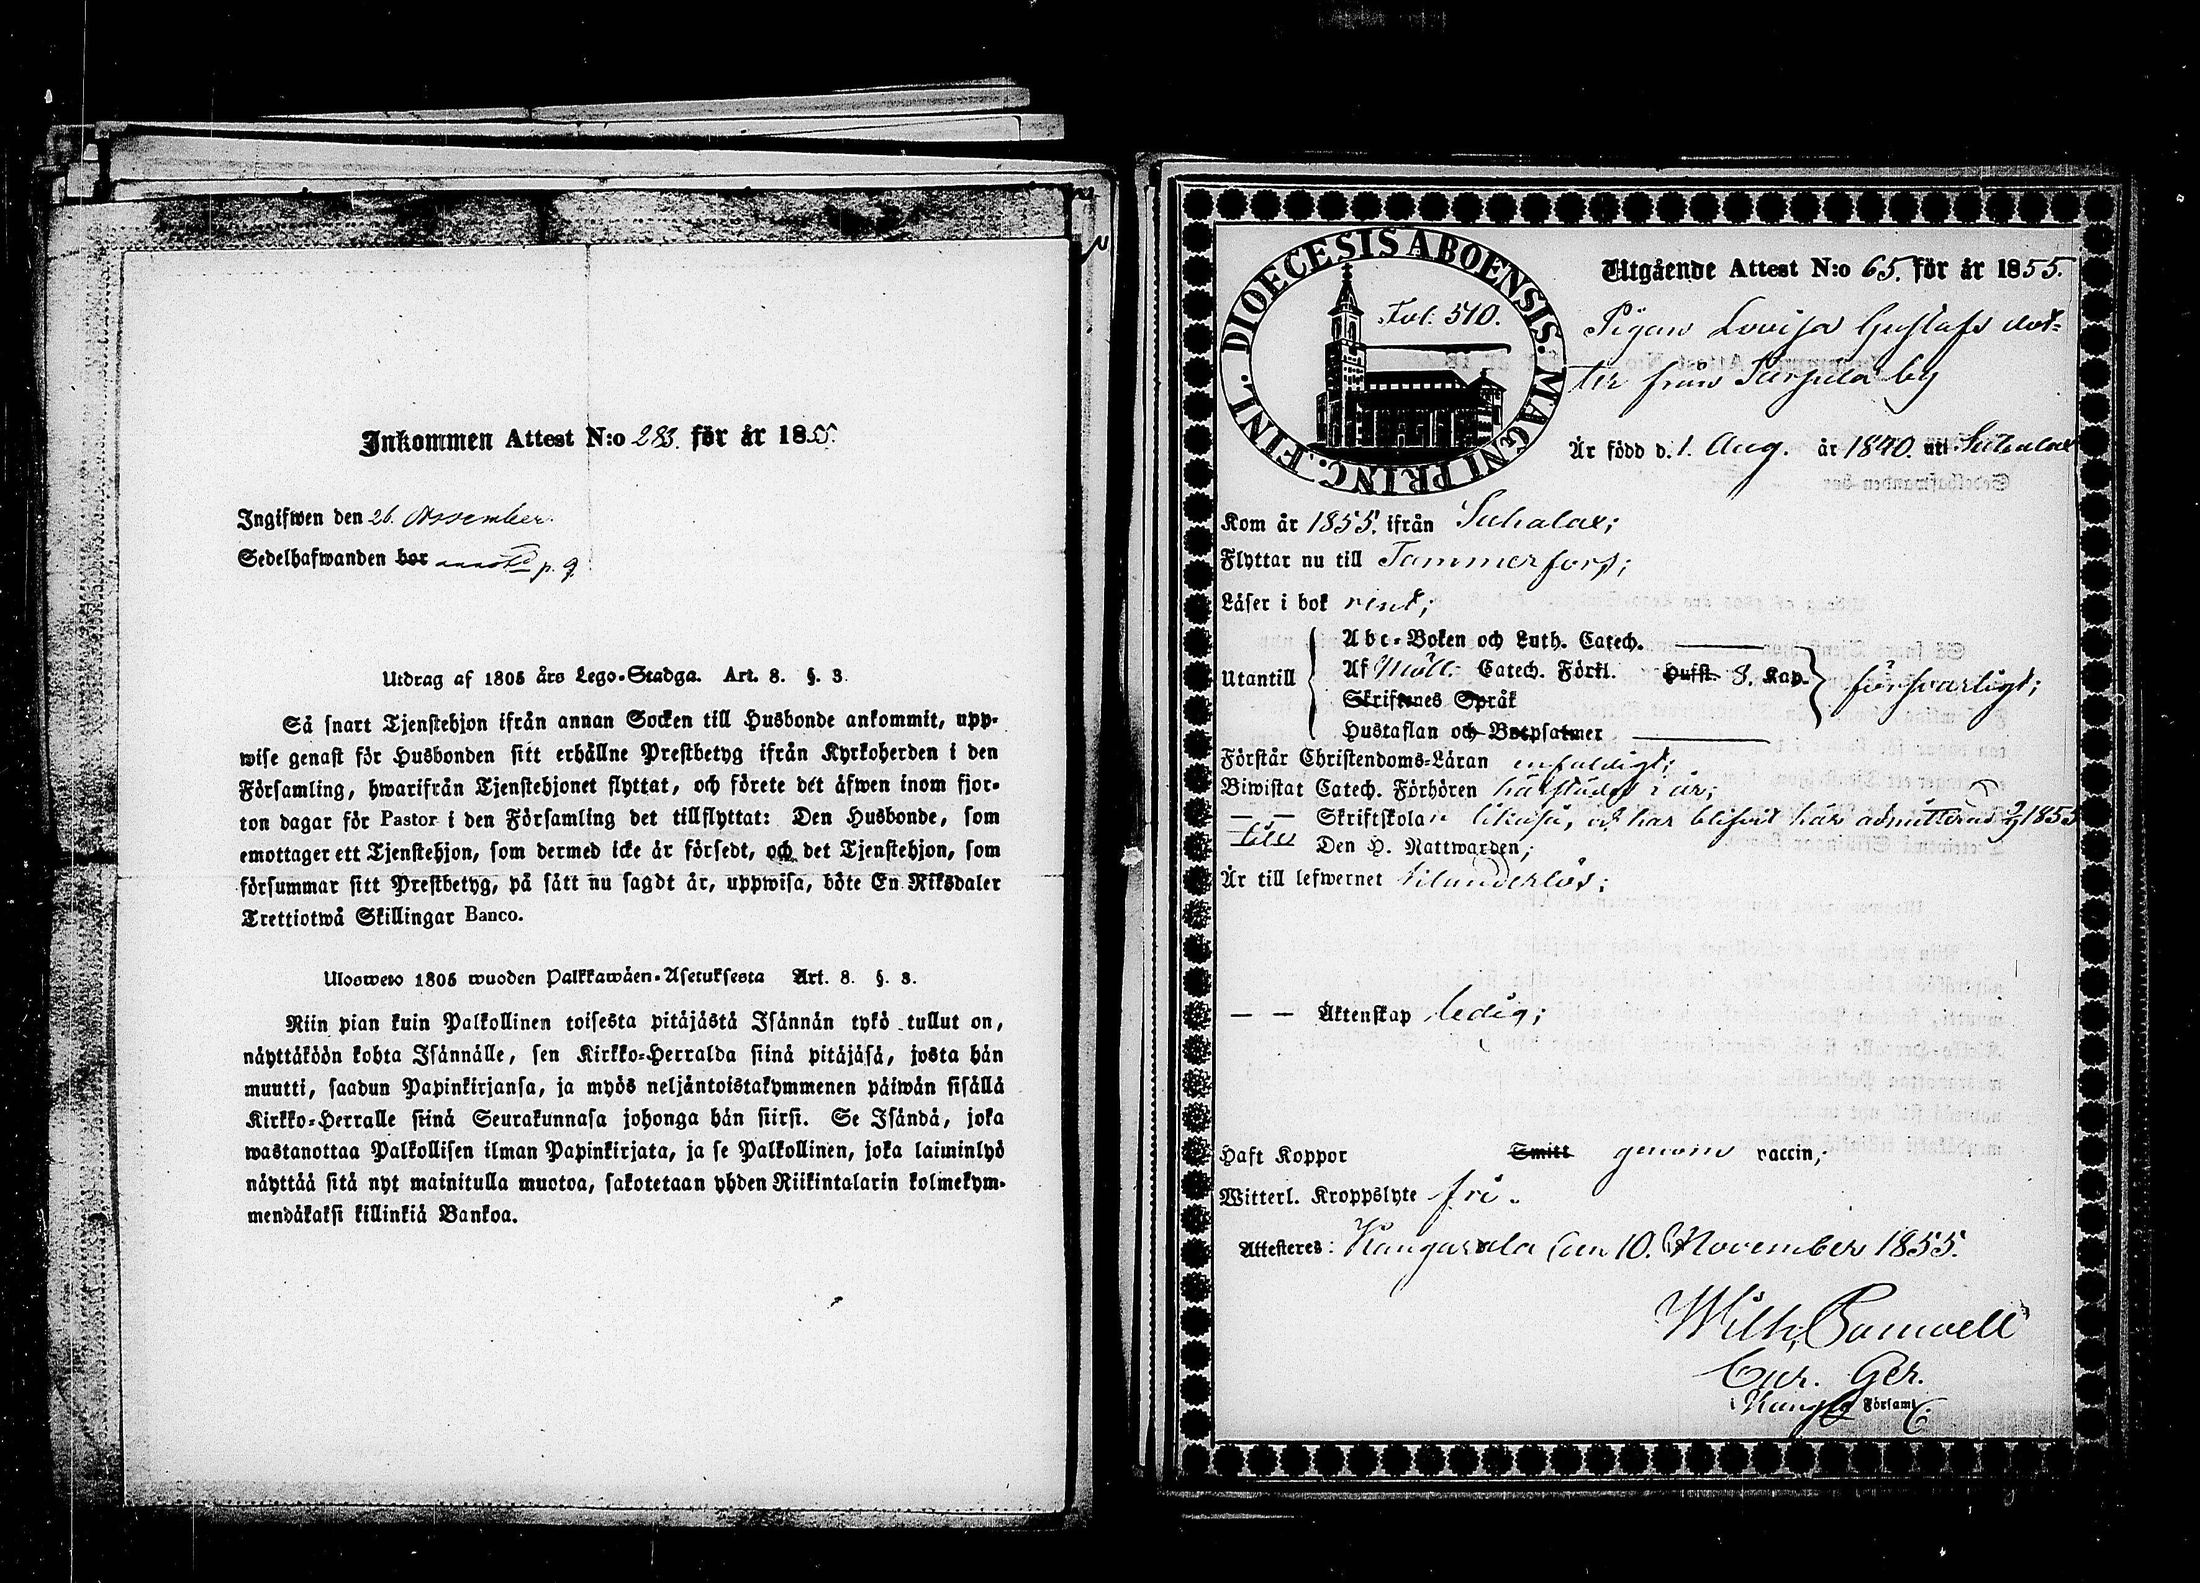 Inkommen Attest N:o 283. för år 1855.
Ingifwen den 26. November.
Sedelhafwanden bor p. 9
Utdrag af 1805 års Lego-Stadga. Art. 8. §. 3.
Så snart Tjenstehjon ifrån annan Socken till Husbonde ankommit, upp-
wise genast för Husbonden sitt erhållne Prestbetyg ifrån Kyrkoherden i den
Församling, hwarifrån Tjenstehjonet flyttat, och förete det äfwen inom fjor-
ton dagar för Pastor i den Församling det tillflyttat: Den Husbonde, som
emottager ett Tjenstehjon, som dermed icke är försedt, och det Tjenstehjon, som
försummar sitt Prestbetyg, på sätt nu sagdt är, uppwisa, böte En Riksdaler
Trettiotwå Skillingar Banco.
Ulosweto 1805 wuoden Palkkawäen-Asetuksesta Art. 8. §. 3.
Niin pian kuin Palkollinen toisesta pitäjästä Isännän tykö tullut on,
näyttäköön kohta Isännälle, sen Kirkko-Herralda siinä pitäjäsä, josta hän
muutti, saadun Papinkirjansa, ja myös neljäntoistakymmenen päiwän sisällä
Kirkko-Herralle siinä Seurakunnasa johonga hän siirsi. Se Isändä, joka
wastanottaa Palkollisen ilman Papinkirjata, ja se Palkollinen, joka laiminlyö
näyttää sitä nyt mainitulla muotoa, sakotetaan yhden Riikintalarin kolmekym-
mendäkaksi killinkiä Bankoa.
DIOECESIS ABOENSIS. MAGNI PRINC. FINL.
Fol. 510.
Utgående Attest N:o 65. för år 1855.
Pigan Lovisa Gustafs dot-
ter från by
Är född d. 1. Aug. år 1840. uti Suhalax
Kom år 1855. ifrån Suhalax;
Flyttar nu till Tammerfors;
Läser i bok rent;
Abc-Boken och Luth. Catech.
Utantill Af Möll. Catech. Förkl. Hufst. 8. Kap. försvarligt;
Skriftenes Språk
Hustaflan och Botpsalmer
Förstår Christendoms-Läran enfaldigt;
Biwistat Catech. Förhören härstädes i år;
— — Skriftskolan likaså, och har blifvit här admitterad 1855
Den H. Nattwarden;
Är till lefwernet oklanderlös;
— — Äktenskap ledig;
Haft Koppor Smitt genom vaccin;
Witterl. Kroppslyte fri.
Attesteres: Kangasala den 10. November 1855.
Wilh. Bonwell
Cur. Ger.
i Kang Församl.